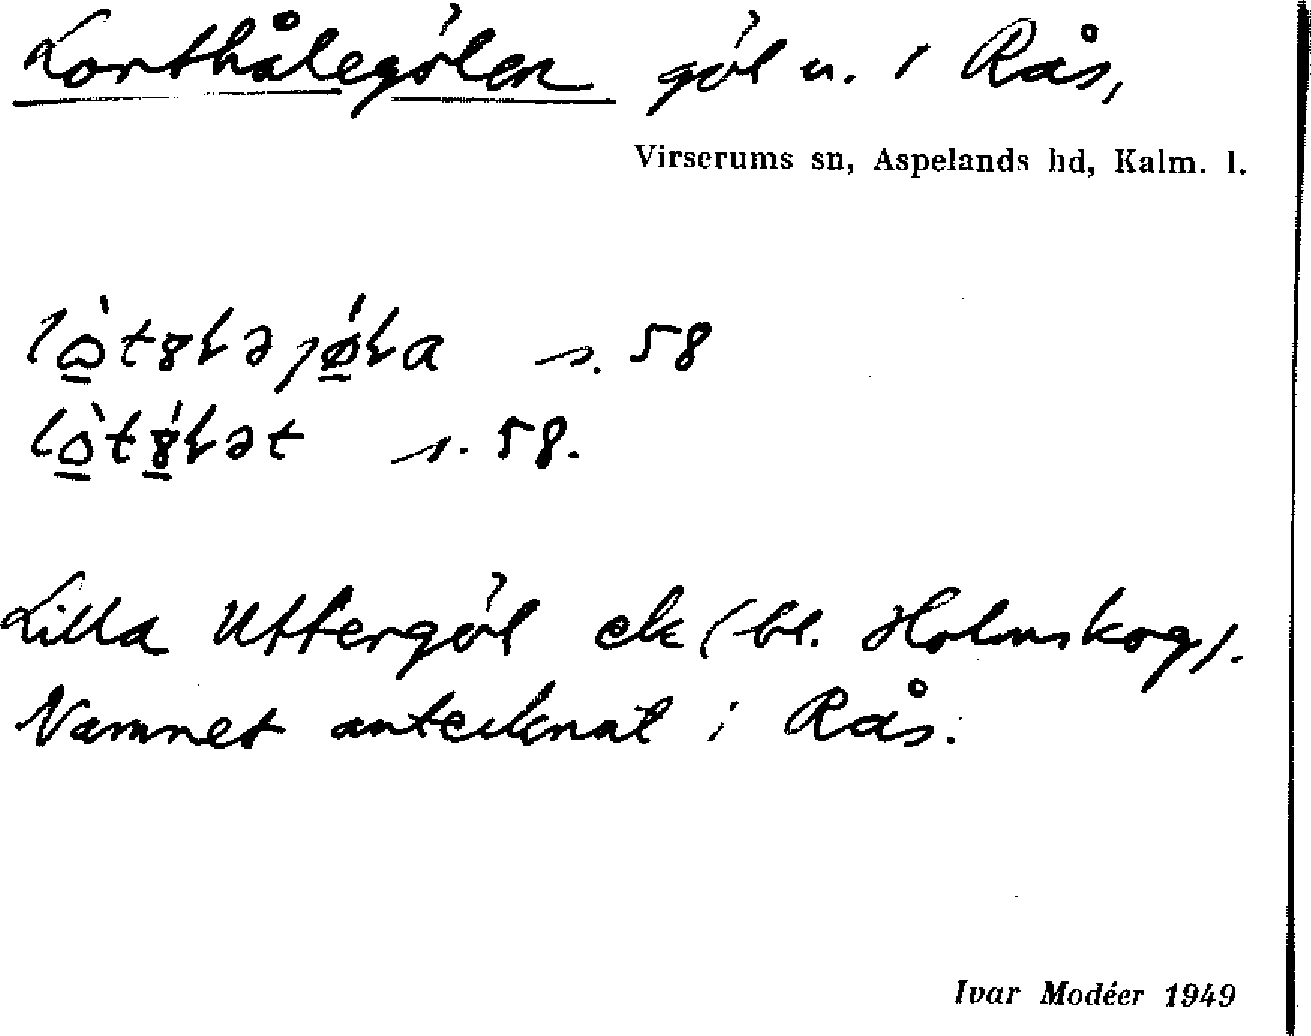 Lorthålegölen göl u. / Rås,
Virserums sn, Aspelands hd, Kalm. l.
s. 58
s. 58.
Lilla Uttergöl ek (bl. Holmskog).
Namnet antecknat i Rås.
Ivar Modéer 1949